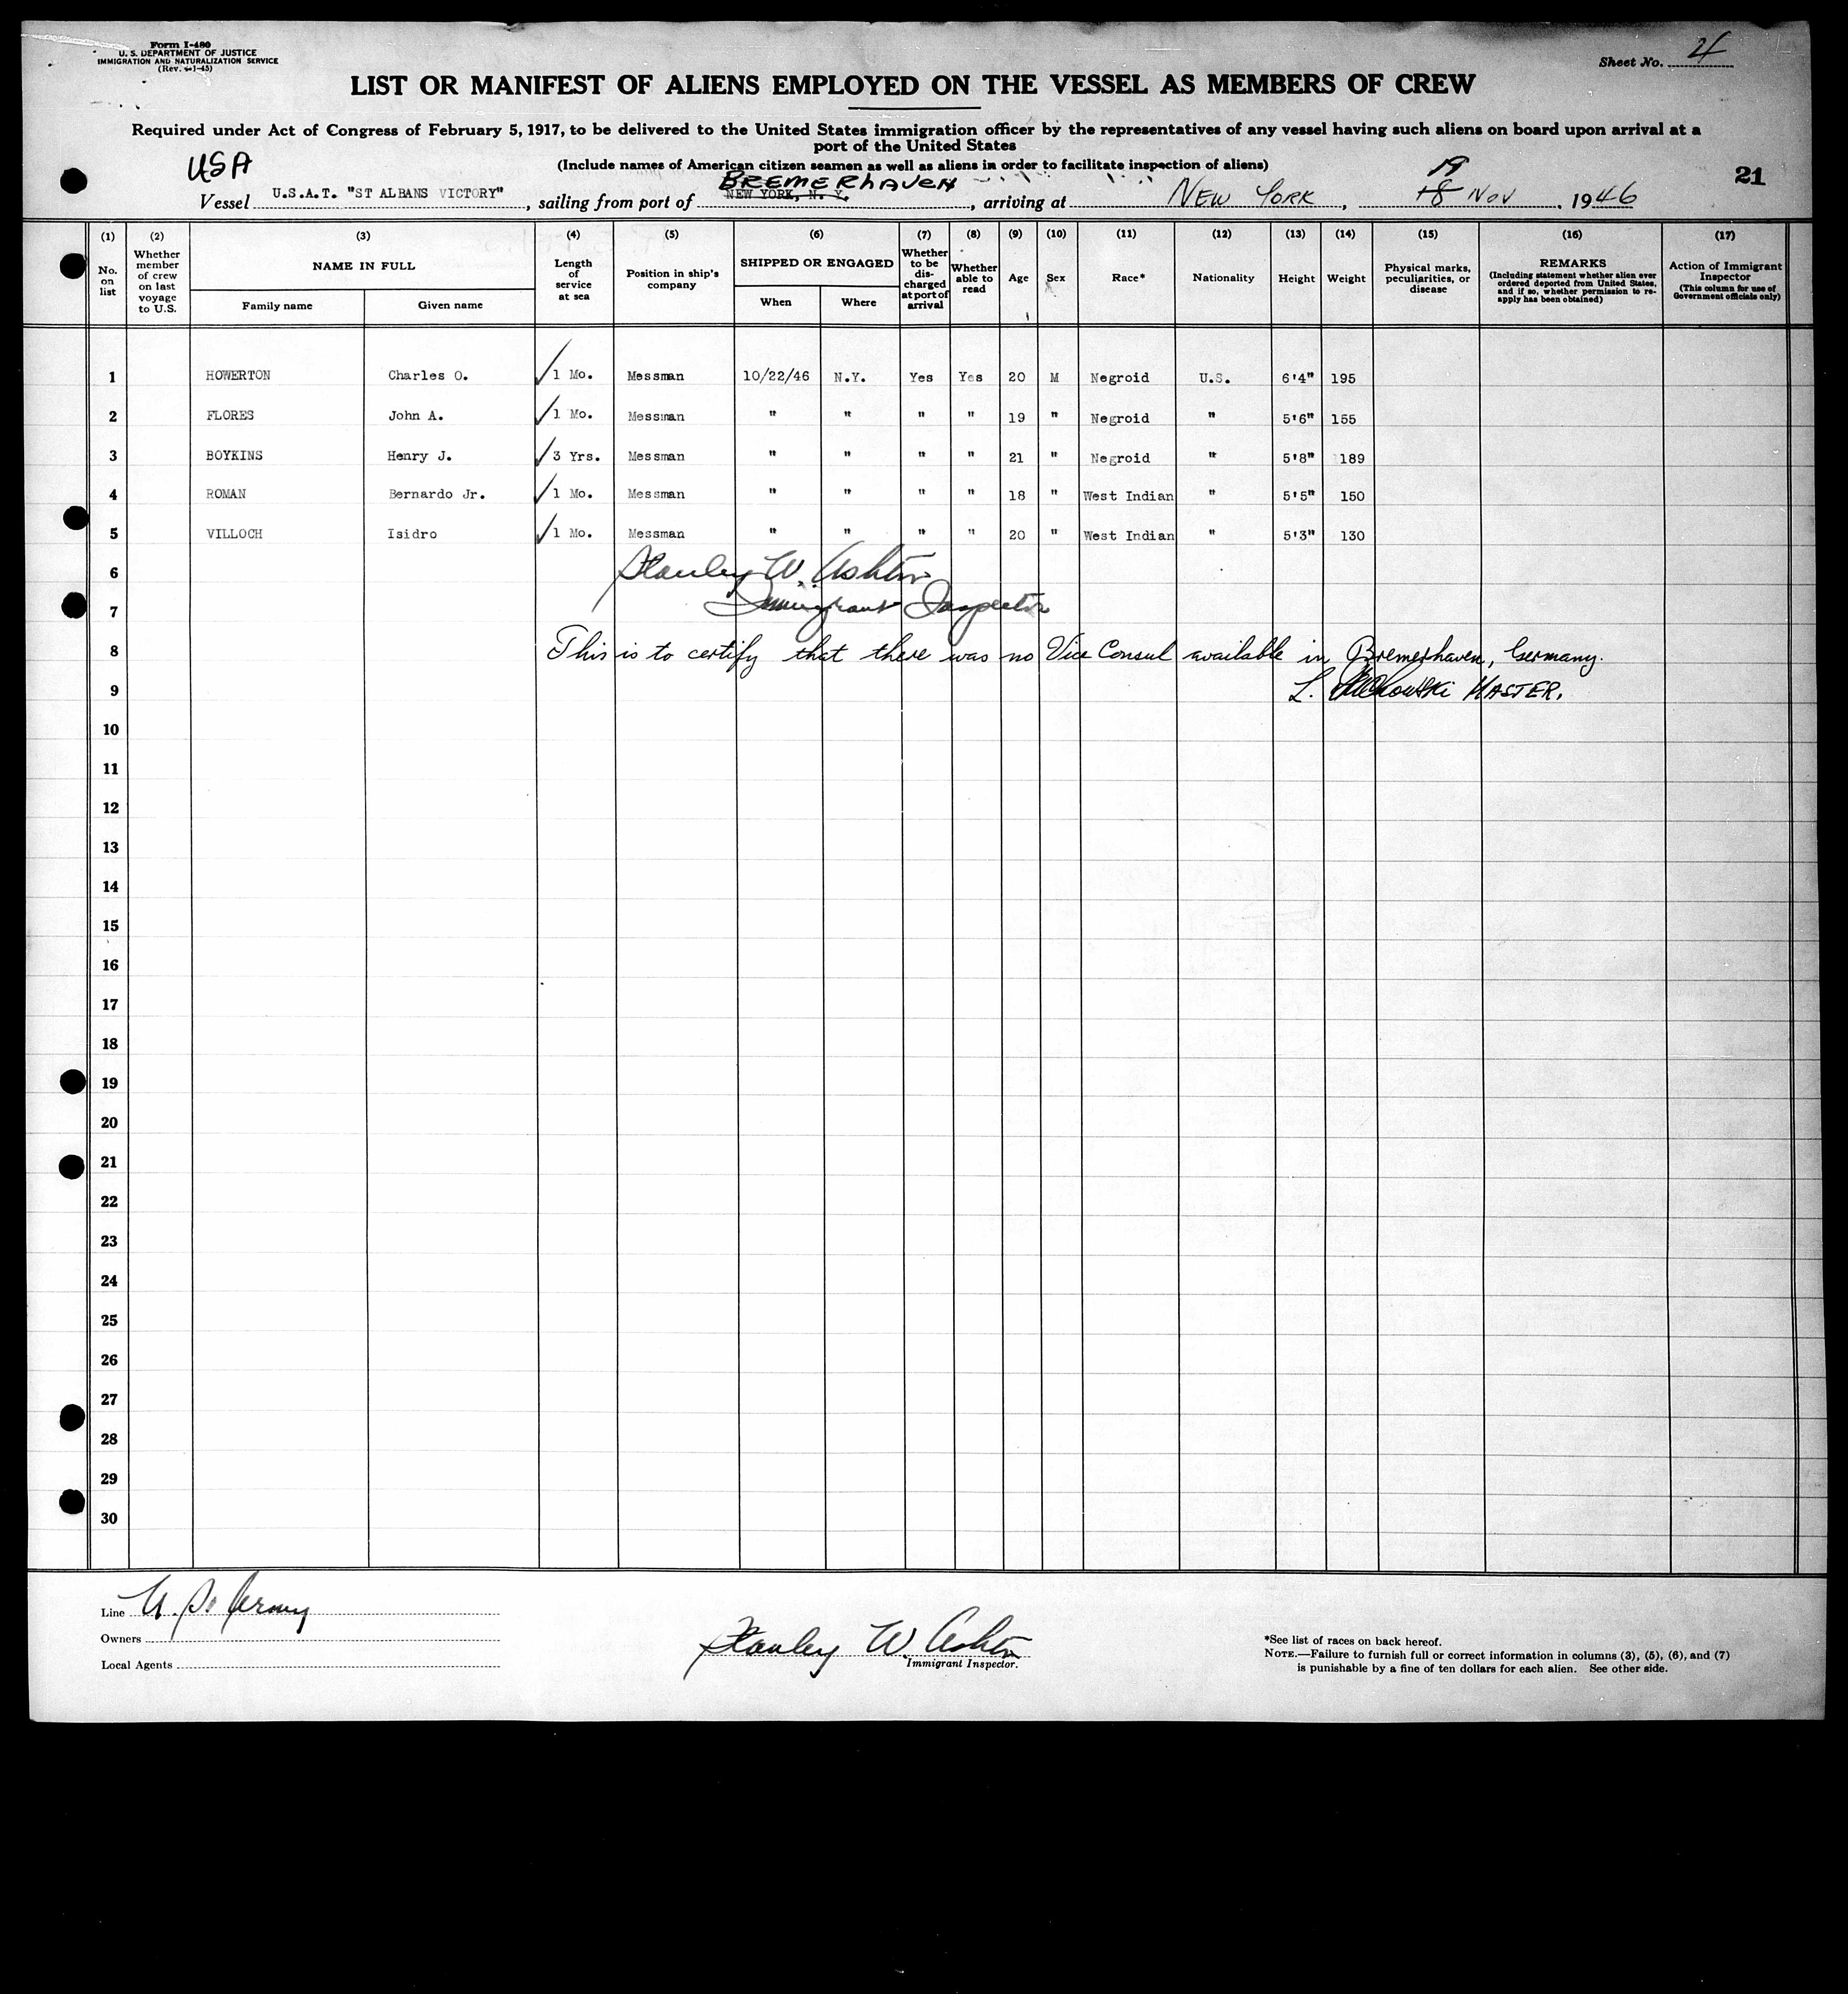 Form I-480
U. S. DEPARTMENT OF JUSTICE
IMMIGRATION AND NATURALIZATION SERVICE
(Rev. 4-1-45)
Sheet No. 4
LIST OR MANIFEST OF ALIENS EMPLOYED ON THE VESSEL AS MEMBERS OF CREW
Required under Act of Congress of February 5, 1917, to be delivered to the United States immigration officer by the representatives of any vessel having such aliens on board upon arrival at a
port of the United States
(Include names of American citizen seamen as well as aliens in order to facilitate inspection of aliens)
USA BREMERHAVEN 19 21
Vessel U.S.A.T. "ST ALBANS VICTORY", sailing from port of NEW YORK, N. Y., arriving at NEW YORK, 18 NOV, 1946
(1) (2) (3) (4) (5) (6) (7) (8) (9) (10) (11) (12) (13) (14) (15) (16) (17)
No. on list
Whether member of crew on last voyage to U.S.
NAME IN FULL
Family name Given name
Length of service at sea
Position in ship's company
SHIPPED OR ENGAGED
When Where
Whether to be discharged at port of arrival
Whether able to read
Age
Sex
Race*
Nationality
Height
Weight
Physical marks, peculiarities, or disease
REMARKS
(Including statement whether alien ever ordered deported from United States, and if so, whether permission to re-apply has been obtained)
Action of Immigrant Inspector
(This column for use of Government officials only)
1 HOWERTON Charles O. ✓ 1 Mo. Messman 10/22/46 N.Y. Yes Yes 20 M Negroid U.S. 6'4" 195
2 FLORES John A. ✓ 1 Mo. Messman " " " " 19 " Negroid " 5'6" 155
3 BOYKINS Henry J. ✓ 3 Yrs. Messman " " " " 21 " Negroid " 5'8" 189
4 ROMAN Bernardo Jr. ✓ 1 Mo. Messman " " " " 18 " West Indian " 5'5" 150
5 VILLOCH Isidro ✓ 1 Mo. Messman " " " " 20 " West Indian " 5'3" 130
6 Stanley W. Ashton
7 Immigrant Inspector
8 This is to certify that there was no Vice Consul available in Bremerhaven, Germany.
9 L. MASTER.
10
11
12
13
14
15
16
17
18
19
20
21
22
23
24
25
26
27
28
29
30
Line U. S. Army
Owners
Local Agents
Stanley W. Ashton
Immigrant Inspector.
*See list of races on back hereof.
NOTE.—Failure to furnish full or correct information in columns (3), (5), (6), and (7)
is punishable by a fine of ten dollars for each alien. See other side.